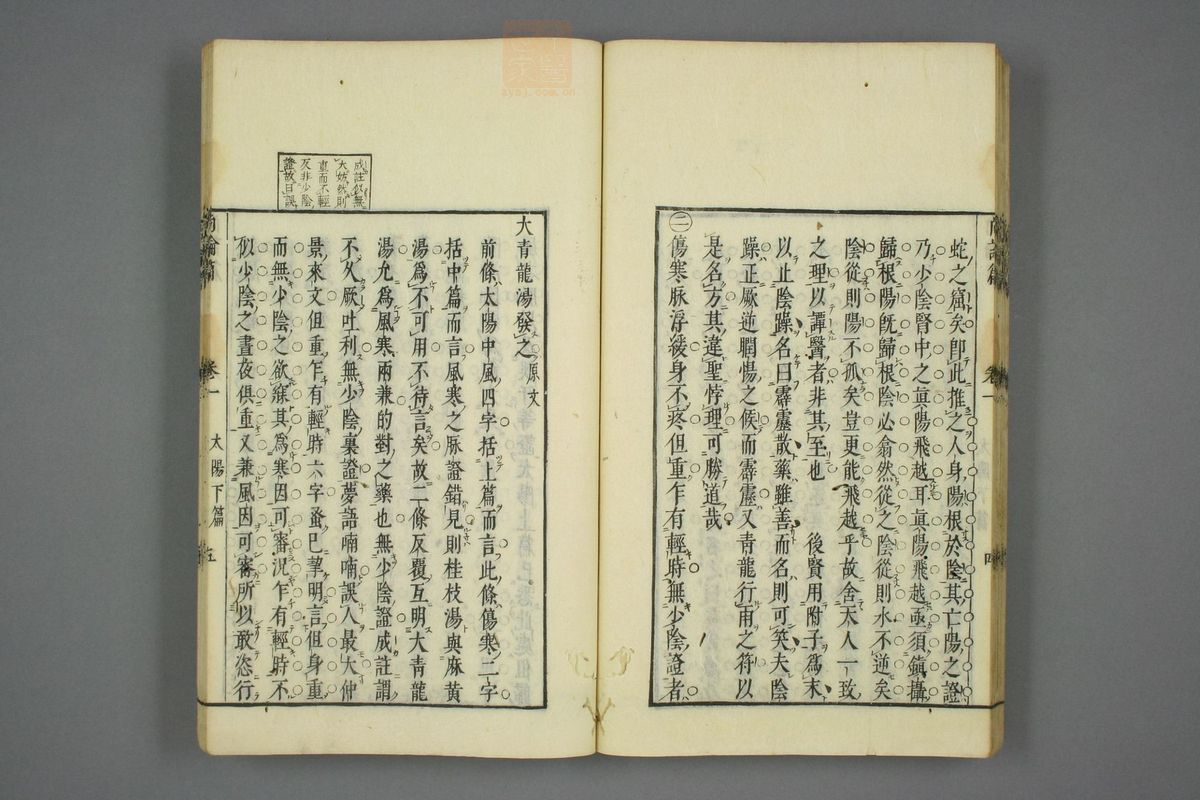 蛇之窟矣卽此推之人身陽根於陰其亡陽之證
乃少陰腎中之眞陽飛越耳眞陽飛越亟須鎮攝
歸根陽旣歸根陰必翕然從之陰從則水不逆矣
陰從則陽不孤矣豈更能飛越乎故舍天人一致
之理以譚醫者非其至也　後賢用附子爲末
以止陰躁名曰霹靂散藥雖善而名則可笑夫陰
躁正厥逆瞤惕之候而霹靂又青龍行雨之符以
是名方其違聖悖理可勝道哉
㊁傷寒脉浮緩身不疼但重乍有輕時無少陰證者
尚論篇　卷一　四
大青龍湯發之原文
前條太陽中風四字括上篇而言此條傷寒二字
括中篇而言風寒之脉證錯見則桂枝湯與麻黃
湯爲不可用不待言矣故二條反覆互明大青龍
湯允爲風寒兩兼的對之藥也無少陰證成註謂
不久厥吐利無少陰裏證夢語喃喃誤人最大仲
景來文但重乍有輕時六字蚤已挈明言但身重
而無少陰之欲寐其爲寒因可審況乍有輕時不
似少陰之晝夜俱重又兼風因可審所以敢恣行
成註似無
大妨然則
重而不輕
反非少陰
證故曰誤
尚論篇　卷一　太陽下篇　五